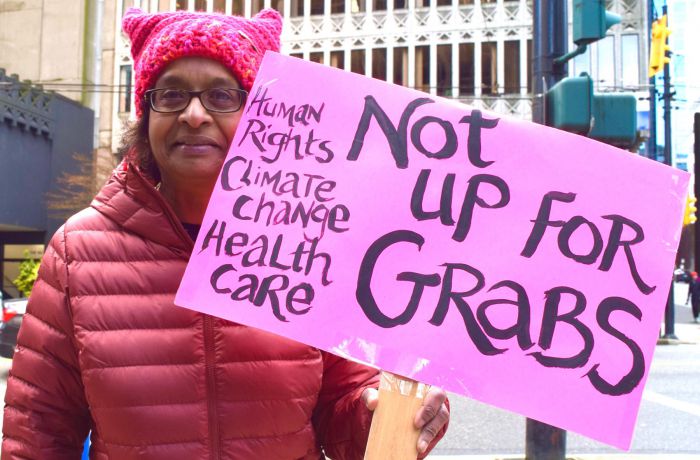 Human
Rights
Climate
change
Health
care
Not
up for
Grabs